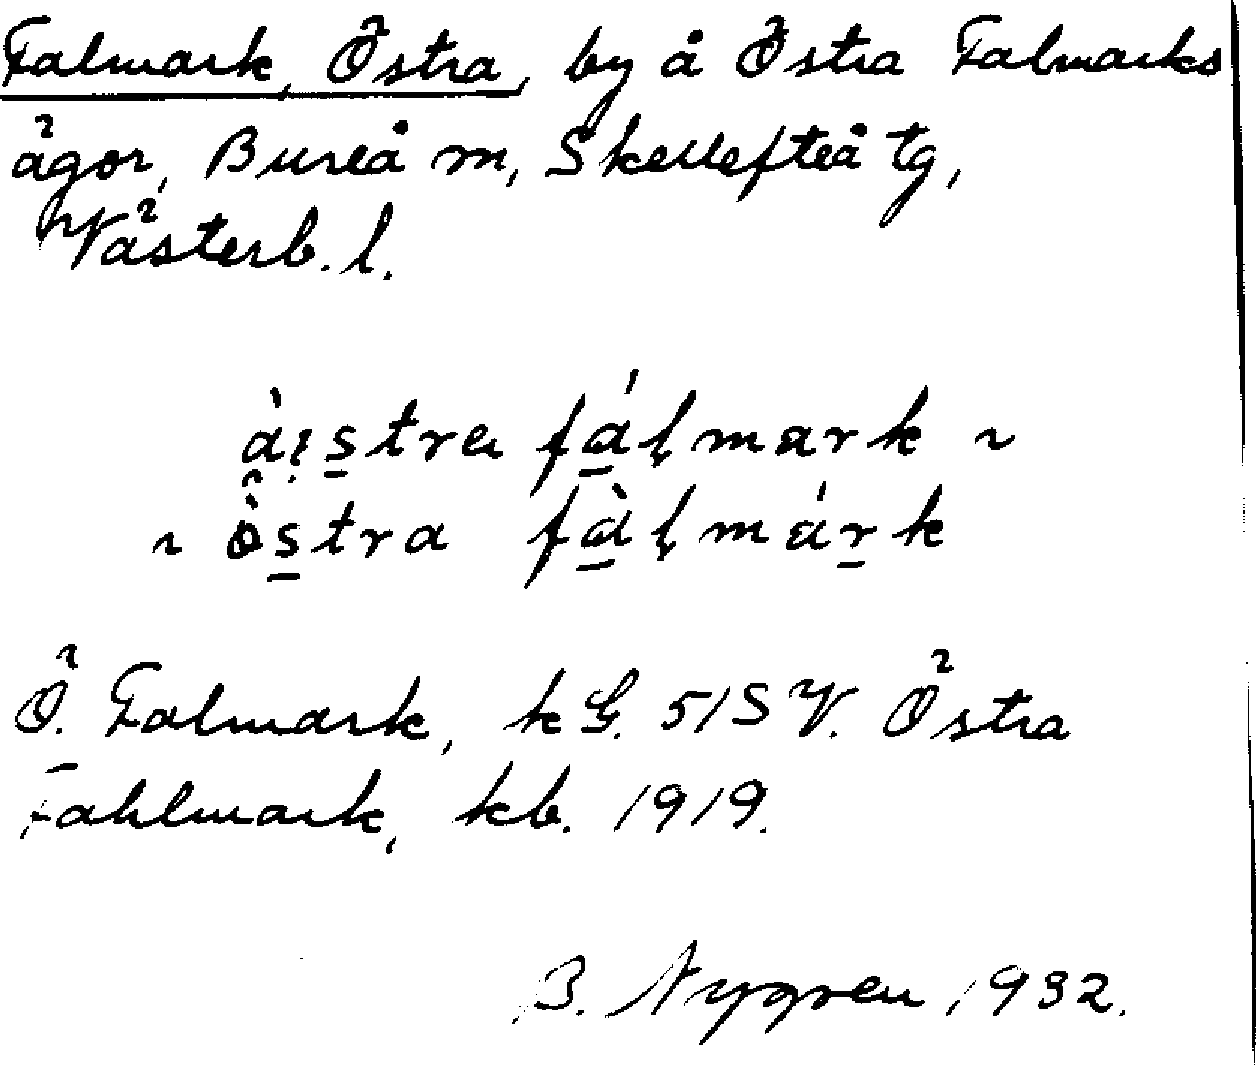 Falmark, Östra, by å Östra Falmarks
ägor, Bureå m, Skellefteå tg,
Västerb. l.
fálmark ~
~ östra fàlmárk
Ö. Falmark, kG. 515 V. Östra
Fahlmark, kb. 1919.
B. Nygren 1932.